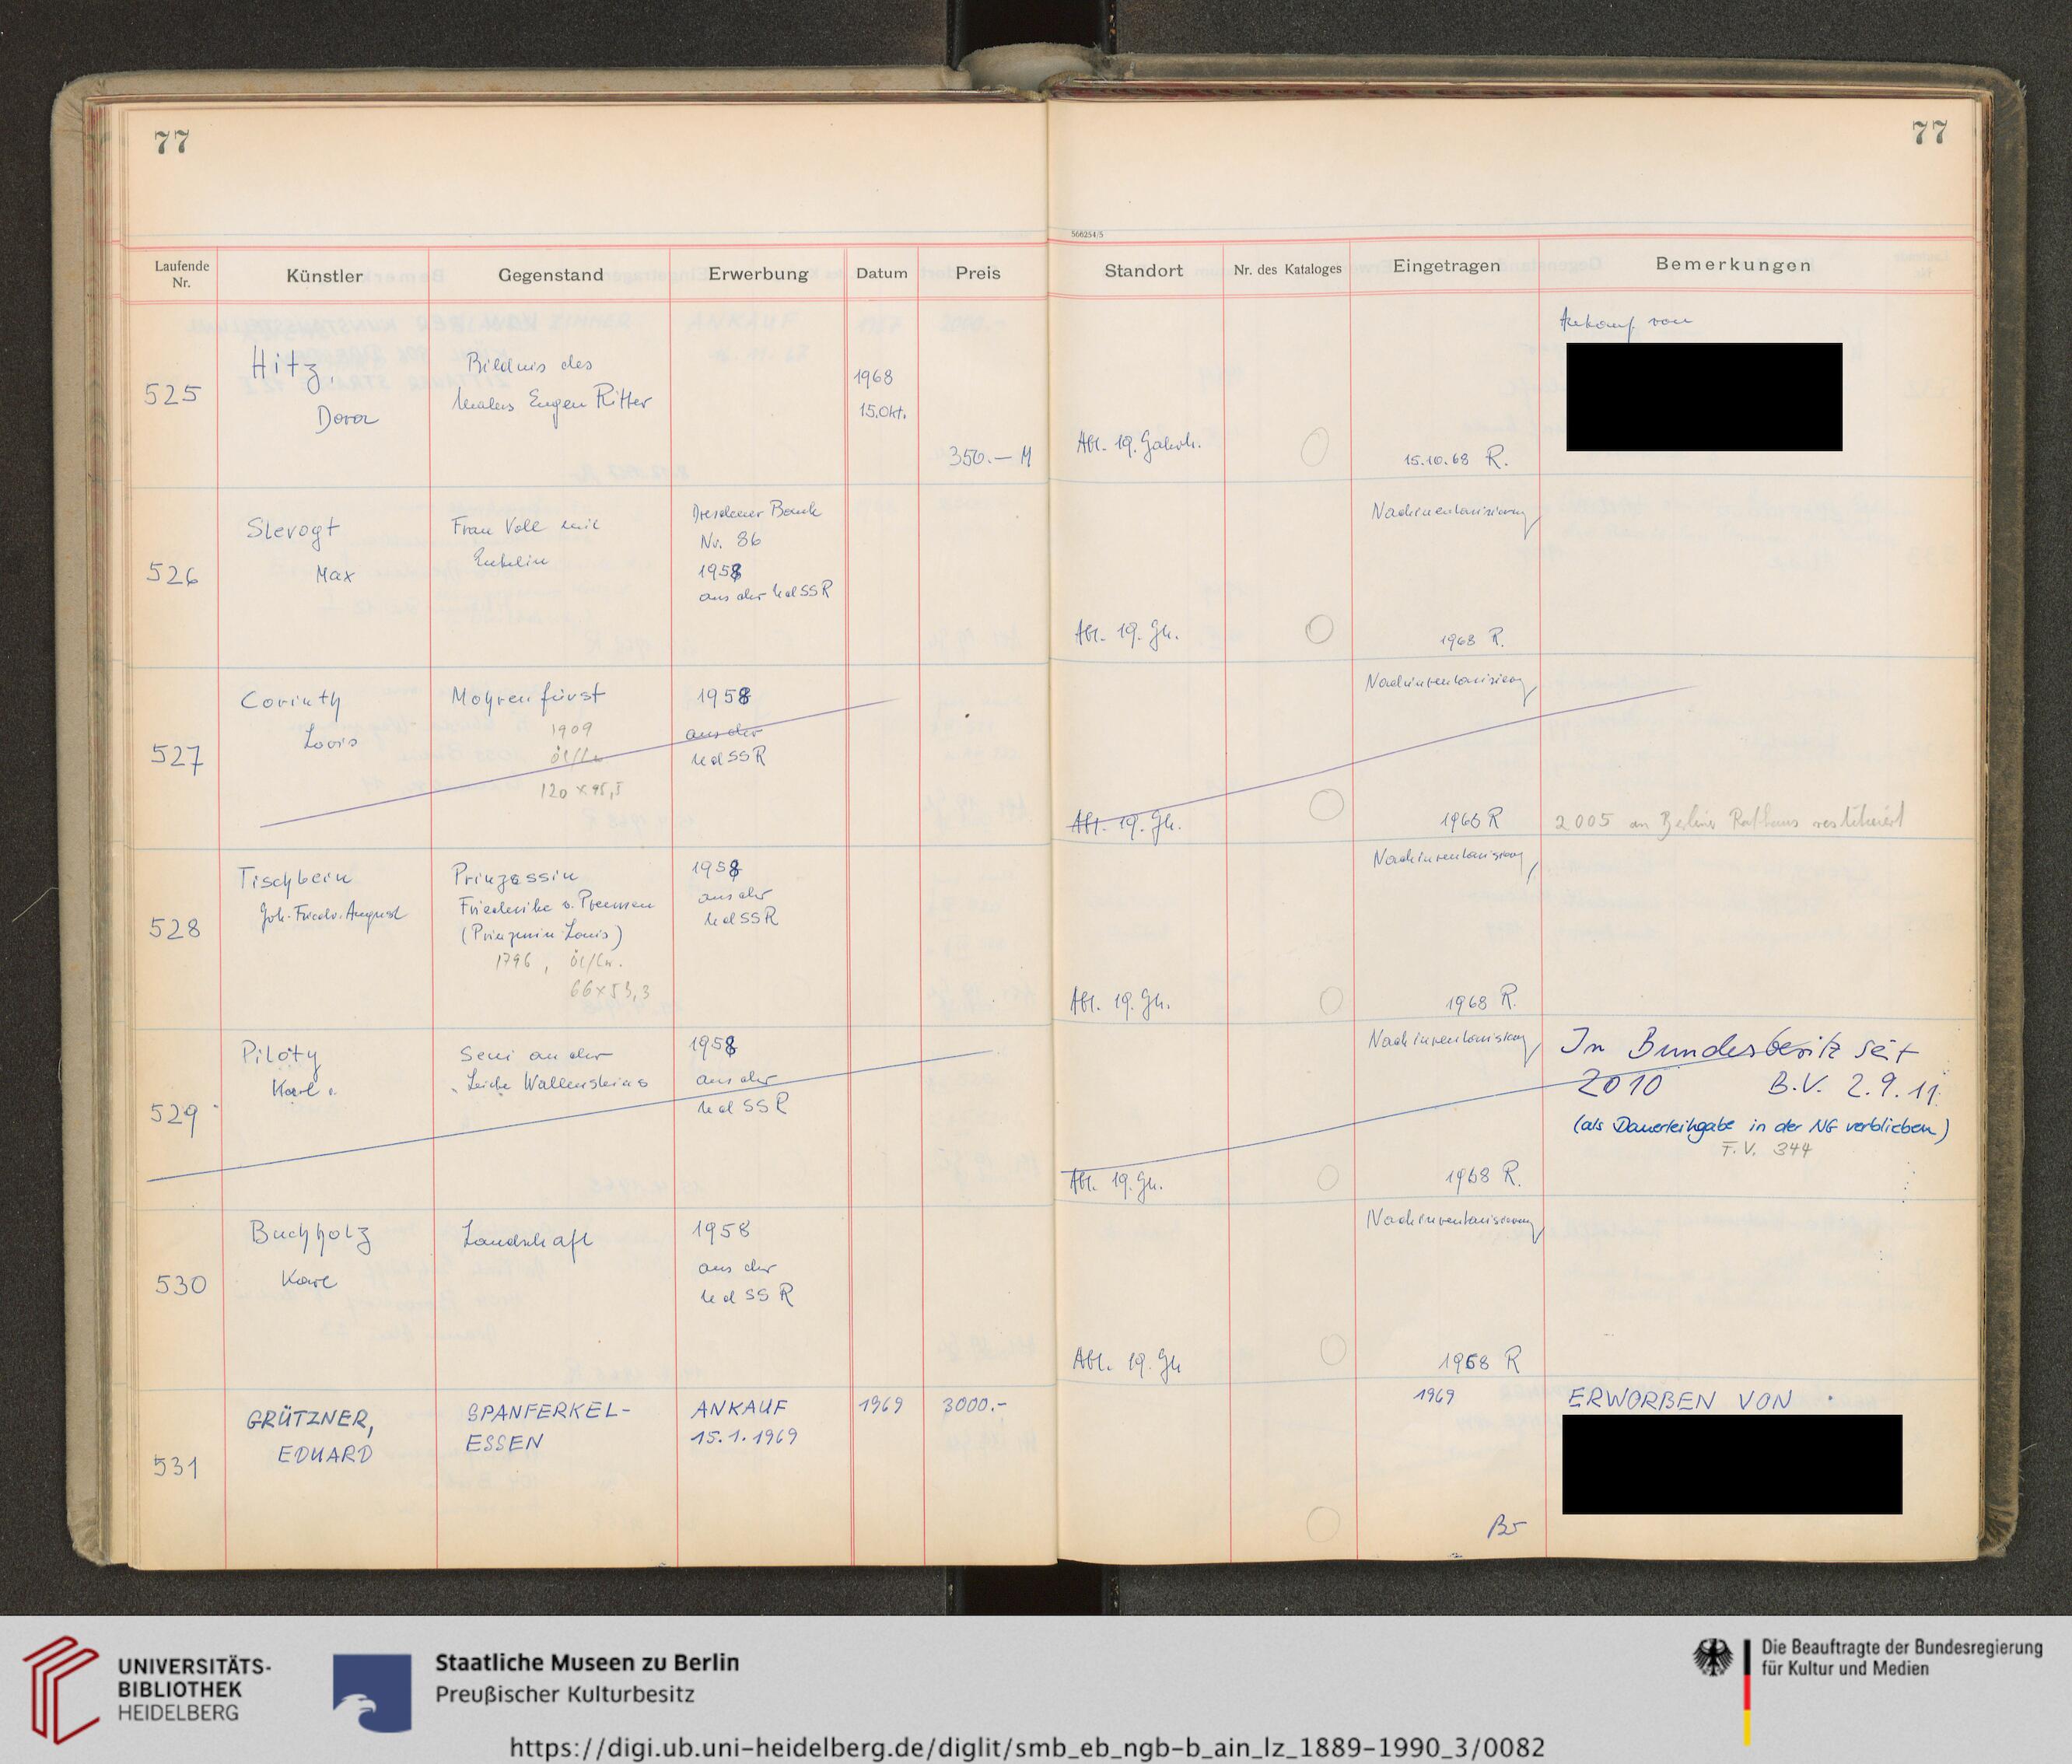 77
77
566254/5
Laufende Nr.
Künstler
Gegenstand
Erwerbung
Datum
Preis
Standort
Nr. des Kataloges
Eingetragen
Bemerkungen
525
Hitz,
Dora
Bildnis des
Malers Eugen Ritter
1968
15.Okt.
350.— M
Abt. 19.
15.10.68 R.
Ankauf von
526
Slevogt
Max
Frau Voll mit
Enkelin
Dresdener Bank
Nr. 86
1958
aus der UdSSR
Abt. 19. Jh.
Nachinventarisierung
1968 R.
527
Corinth
Lovis
Mohrenfürst
1909
Öl/Lw
120 x 95,5
1958
aus der
UdSSR
Abt. 19. Jh.
Nachinventarisierung
1968 R
2005 an Berliner Rathaus restituiert
528
Tischbein
Joh. Friedr. August
Prinzessin
Friederike v. Preussen
(Prinzessin Louis)
1796, Öl/Lw.
66 x 53,3
1958
aus der
UdSSR
Abt. 19. Jh.
Nachinventarisierung
1968 R.
529
Piloty
Karl v.
Seni an der
Leiche Wallensteins
1958
aus der
UdSSR
Abt. 19. Jh.
Nachinventarisierung
1968 R.
In Bundesbesitz seit
2010 B.V. 2.9.11.
(als Dauerleihgabe in der NG verblieben)
F.V. 344
530
Buchholz
Karl
Landschaft
1958
aus der
UdSSR
Abt. 19. Jh
Nachinventarisierung
1968 R
531
GRÜTZNER,
EDUARD
SPANFERKEL-
ESSEN
ANKAUF
15.1.1969
1969
3000.-
1969
ERWORBEN VON
UNIVERSITÄTS-
BIBLIOTHEK
HEIDELBERG
Staatliche Museen zu Berlin
Preußischer Kulturbesitz
Die Beauftragte der Bundesregierung
für Kultur und Medien
https://digi.ub.uni-heidelberg.de/diglit/smb_eb_ngb-b_ain_lz_1889-1990_3/0082